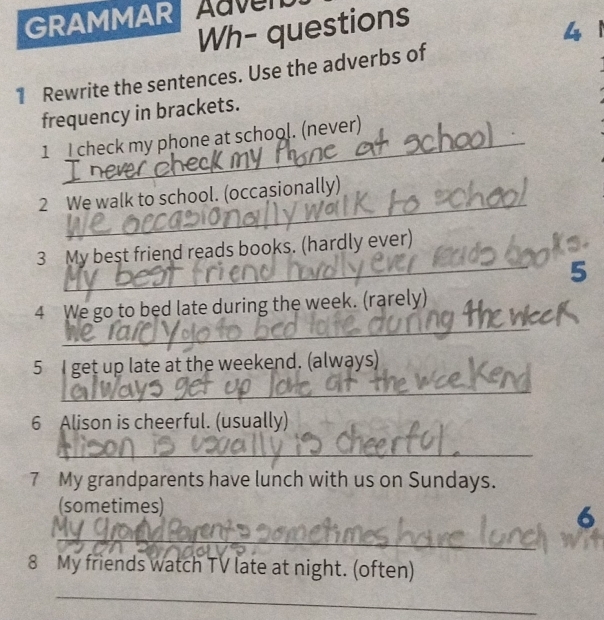 GRAMMAR Adverbs
Wh- questions
4
1 Rewrite the sentences. Use the adverbs of
frequency in brackets.
1 I check my phone at school. (never)
I never check my Phone at school.
2 We walk to school. (occasionally)
We occasionally walk to school
3 My best friend reads books. (hardly ever)
My best friend hardly ever reads books.
5
4 We go to bed late during the week. (rarely)
We rarely go to bed late during the week
5 I get up late at the weekend. (always)
I always get up late at the weekend
6 Alison is cheerful. (usually)
Alison is usually is cheerful.
7 My grandparents have lunch with us on Sundays.
(sometimes)
6
My grandParents sometimes have lunch with
us on sundays.
8 My friends watch TV late at night. (often)